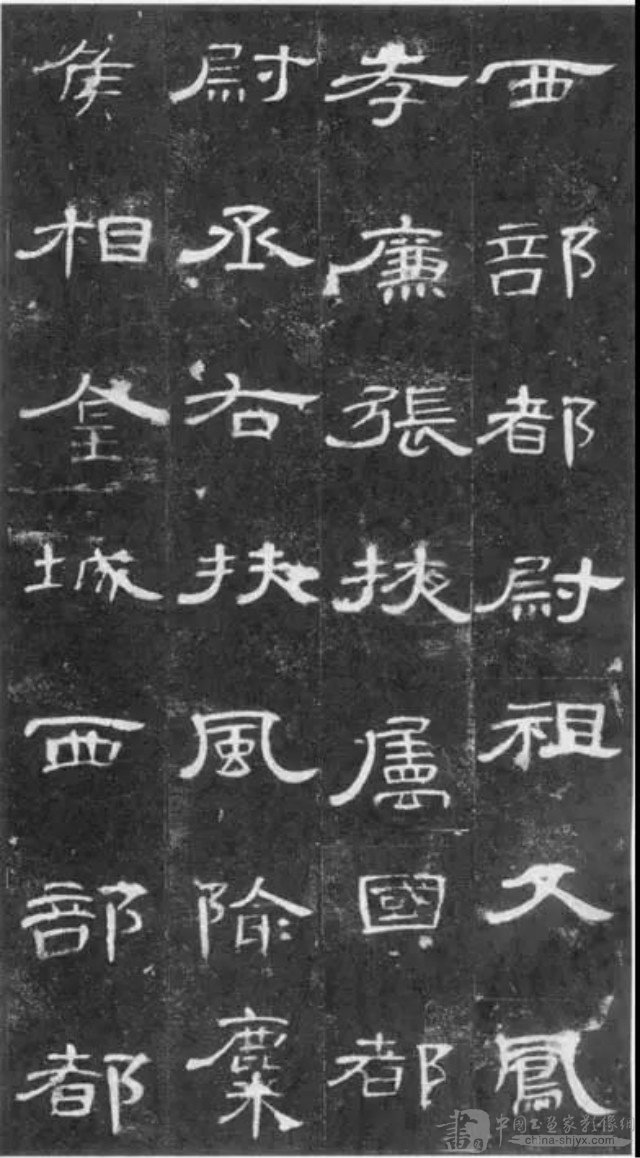 西部都尉祖父鳳
孝廉張掖屬國都
尉丞右扶風隃麋
侯相金城西部都
書 中国书画家影像网
china-shjyx.com